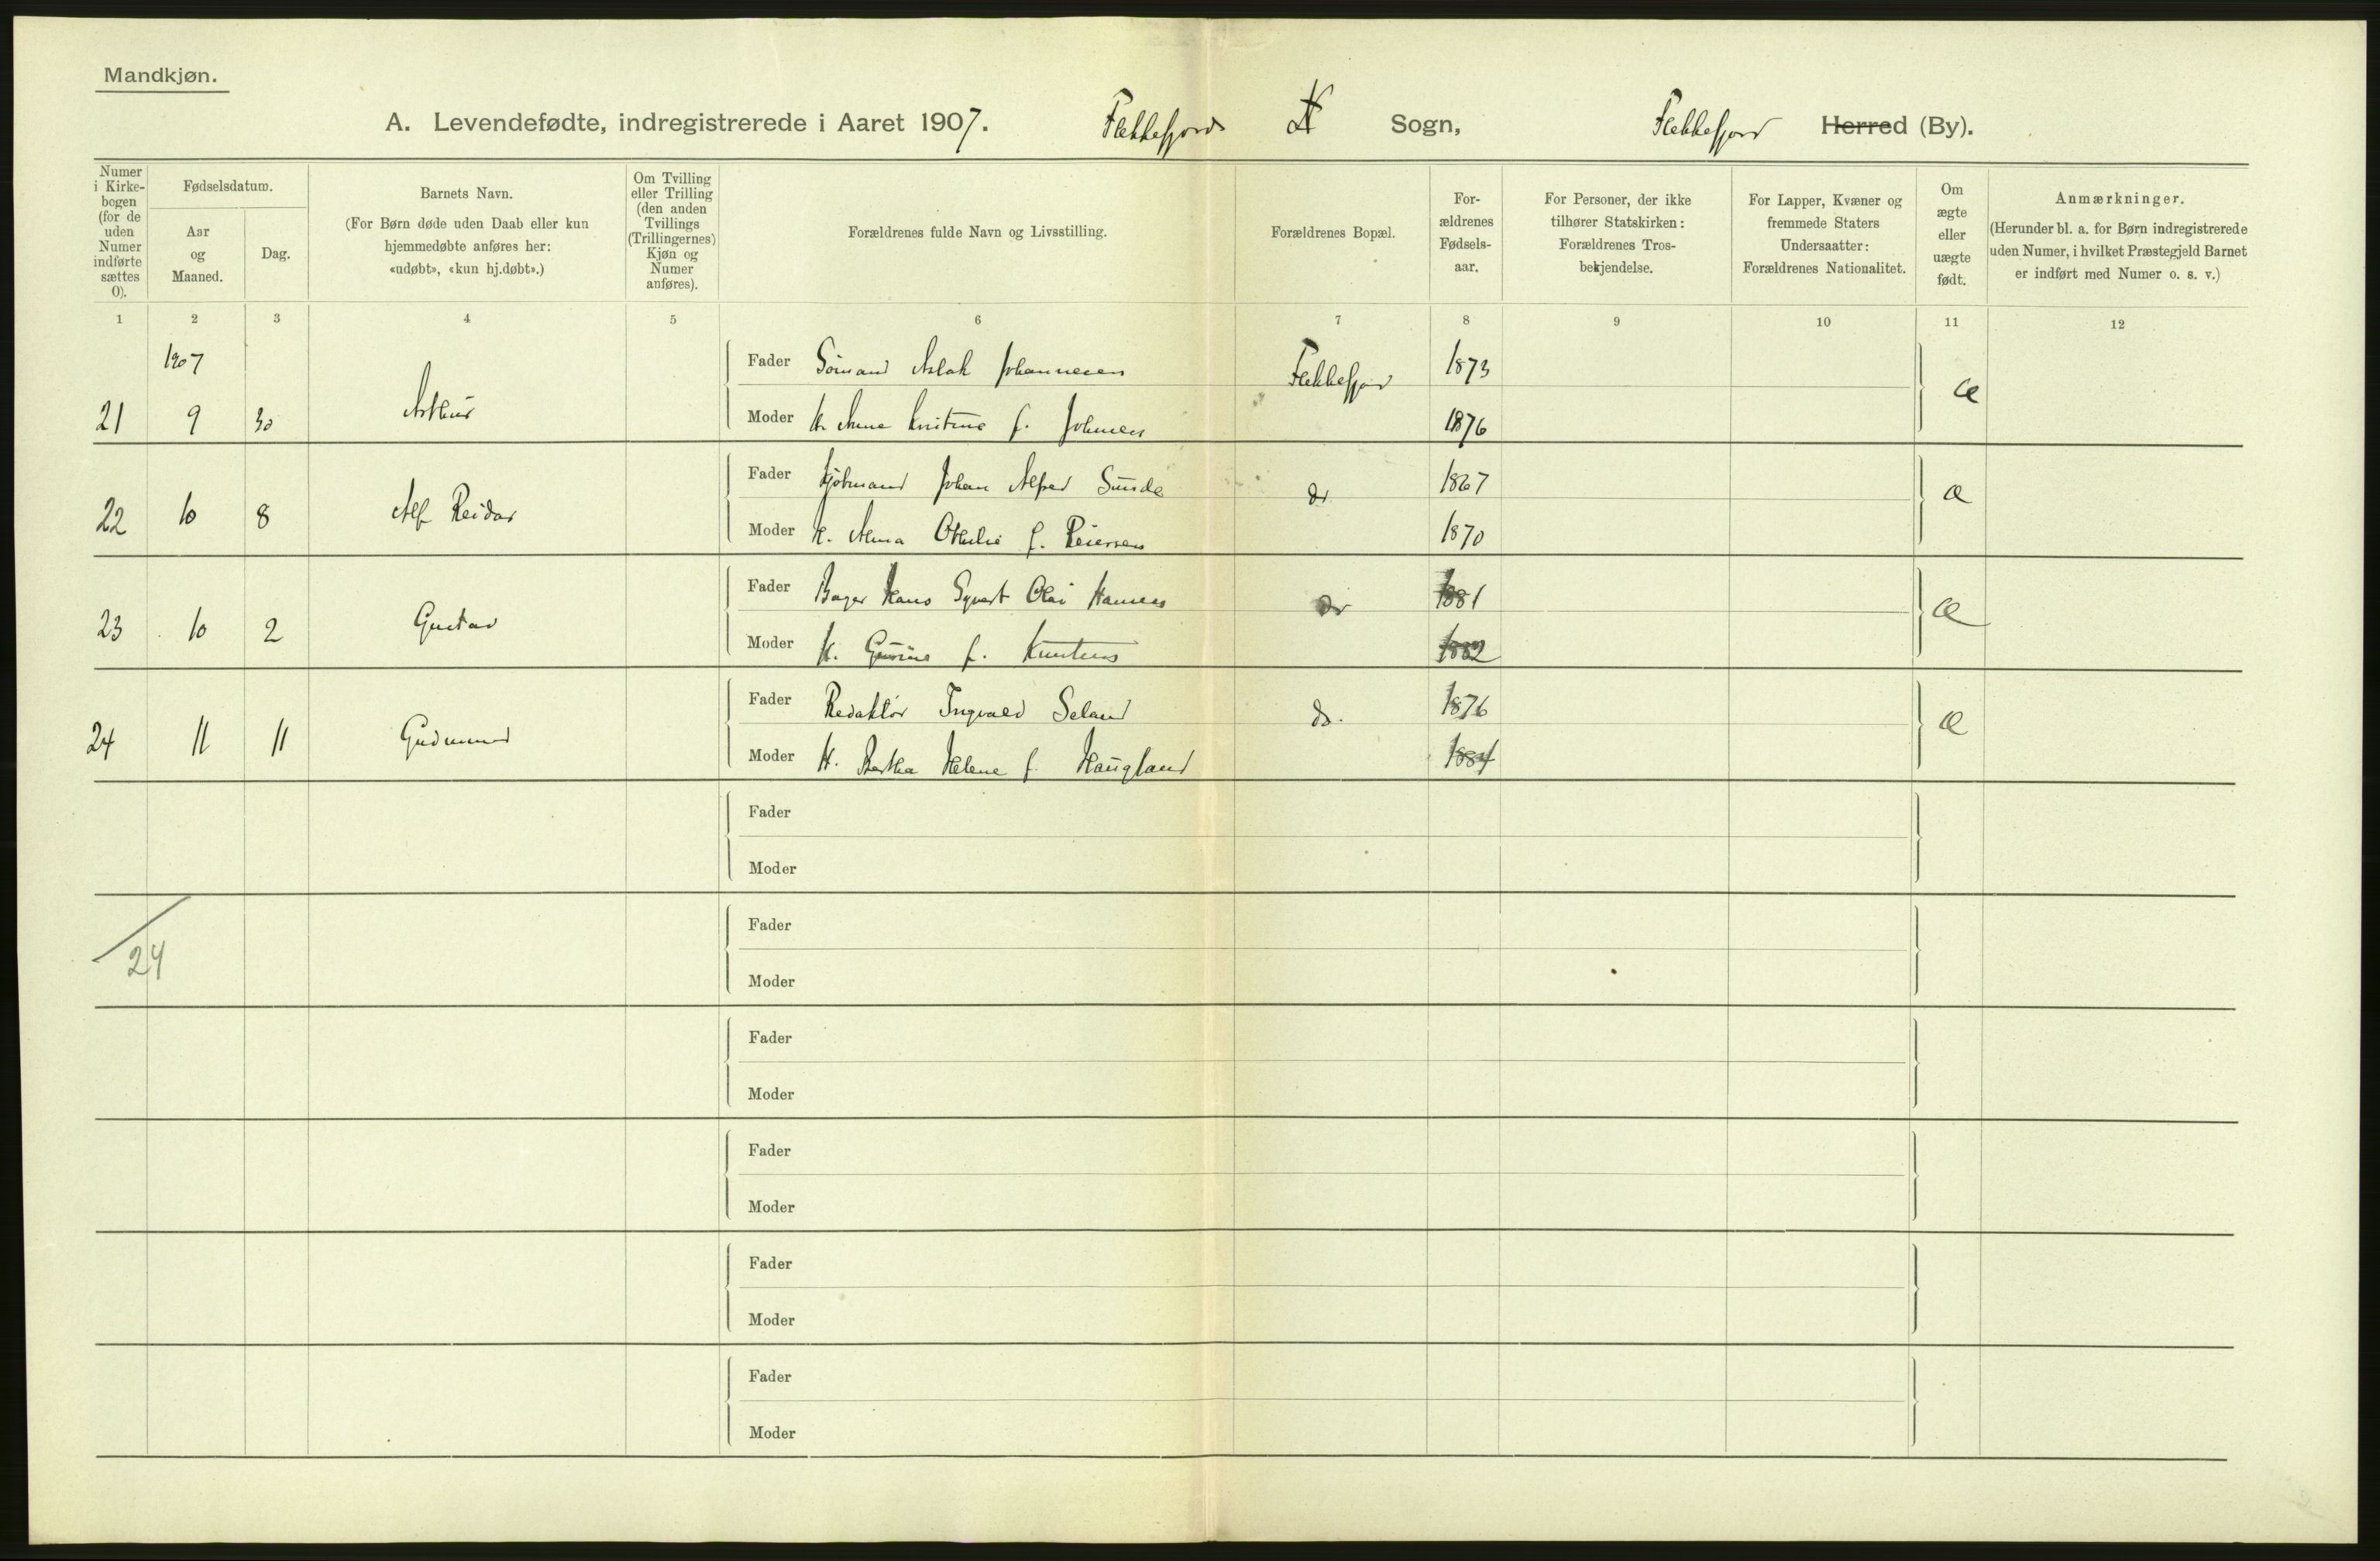 Mandkjøn.
A. Levendefødte, indregistrerede i Aaret 1907. Flekkefjords Sogn, Flekkefjord Herred (By).
Numer i Kirke-bogen (for de uden Numer indførte sættes 0).
Fødselsdatum.
Aar og Maaned.
Dag.
Barnets Navn.
(For Børn døde uden Daab eller kun
hjemmedøbte anføres her:
«udøbt», «kun hj.døbt».)
Om Tvilling
eller Trilling
(den anden
Tvillings
(Trillingernes)
Kjøn og
Numer
anføres).
Forældrenes fulde Navn og Livsstilling.
Forældrenes Bopæl.
For-
ældrenes
Fødsels-
aar.
For Personer, der ikke
tilhører Statskirken:
Forældrenes Tros-
bekjendelse.
For Lapper, Kvæner og
fremmede Staters
Undersaatter:
Forældrenes Nationalitet.
Om
ægte
eller
uægte
født.
Anmærkninger.
(Herunder bl. a. for Børn indregistrerede
uden Numer, i hvilket Præstegjeld Barnet
er indført med Numer o. s. v.)
1 2 3 4 5 6 7 8 9 10 11 12
1907
Fader Sömand Aslak Johannesen Flekkefjord 1873
21 9 30 Arthur æ
Moder H. Anne Kristine f. Johnsen 1876
Fader Kjöbmand Johan Alfred Sunde do 1867
22 10 8 Alf Reidar æ
Moder H. Alma Othilie f. Reiersen 1870
Fader Bager Hans Syvert Olai Hansen do 1881
23 10 2 Gustav æ
Moder H. Gurine f. Knutsen 1882
Fader Redaktör Ingvald Seland do. 1876
24 11 11 Gudmund æ
Moder H. Bertha Helene f. Haugland 1884
Fader
Moder
Fader
24
Moder
Fader
Moder
Fader
Moder
Fader
Moder
Fader
Moder